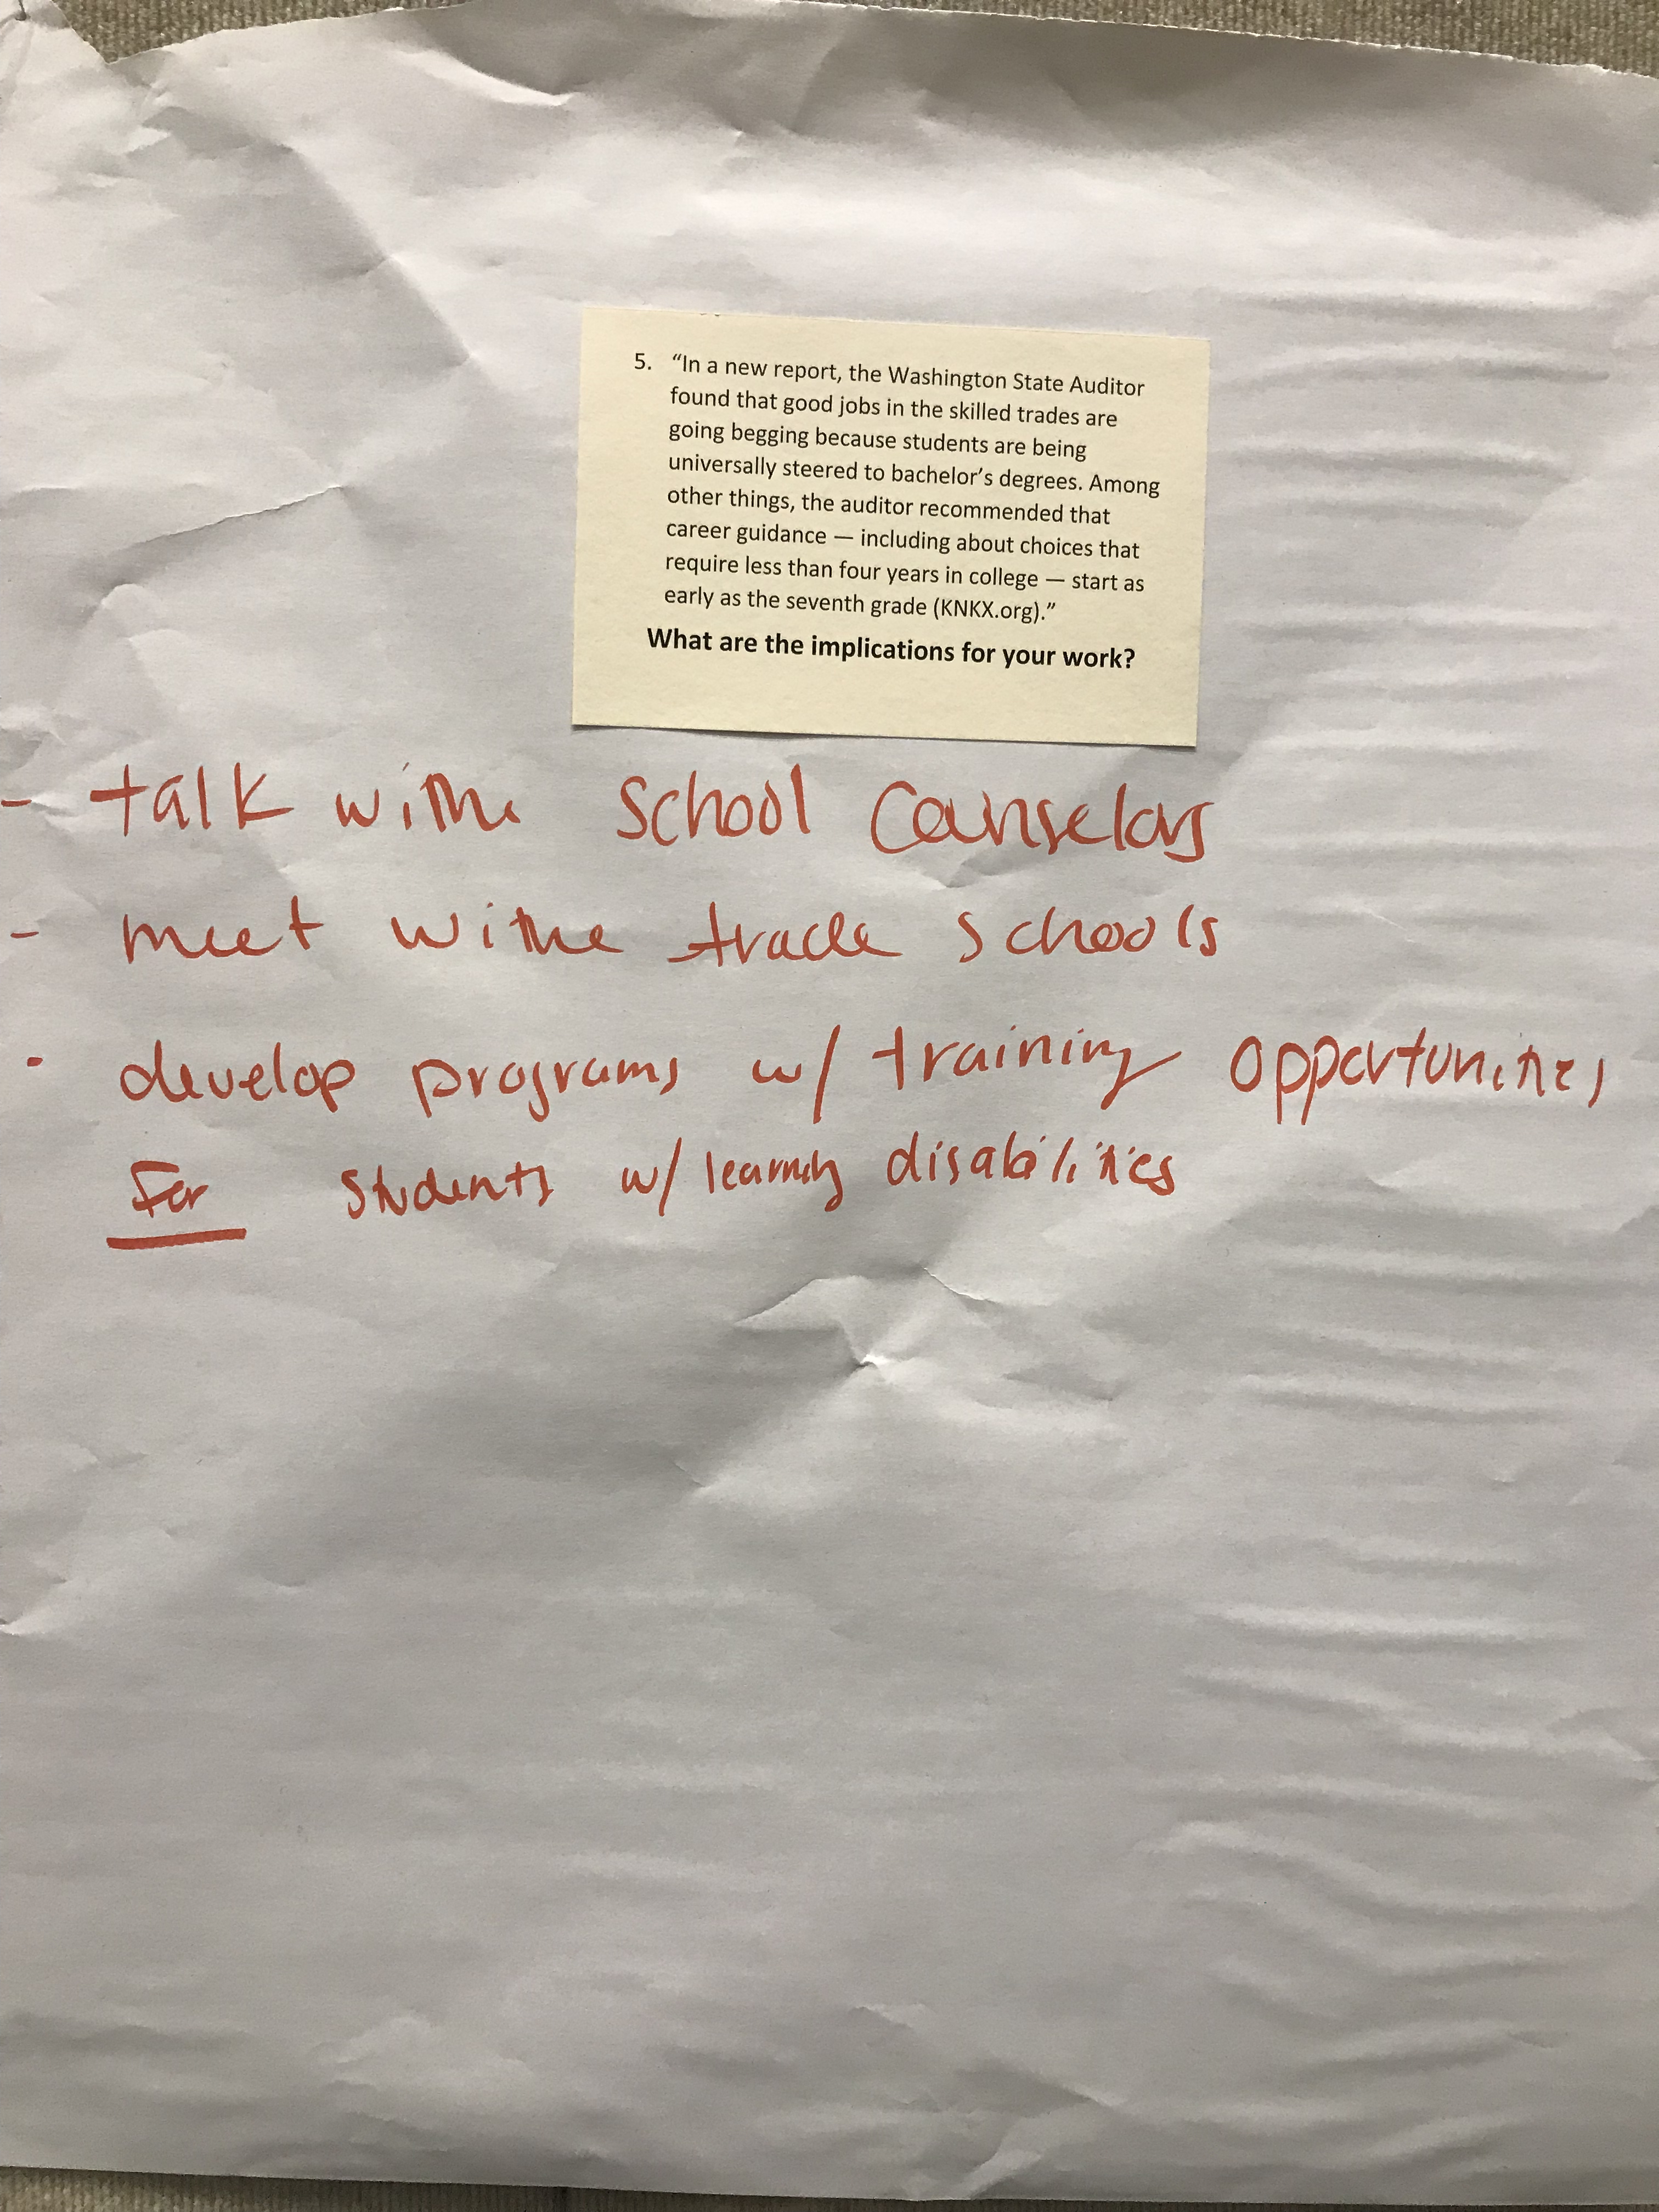 5. “In a new report, the Washington State Auditor
found that good jobs in the skilled trades are
going begging because students are being
universally steered to bachelor’s degrees. Among
other things, the auditor recommended that
career guidance — including about choices that
require less than four years in college — start as
early as the seventh grade (KNKX.org).”
What are the implications for your work?
- talk with school counselors
- meet with trade schools
- develop programs w/ training opportunities
for students w/ learning disabilities